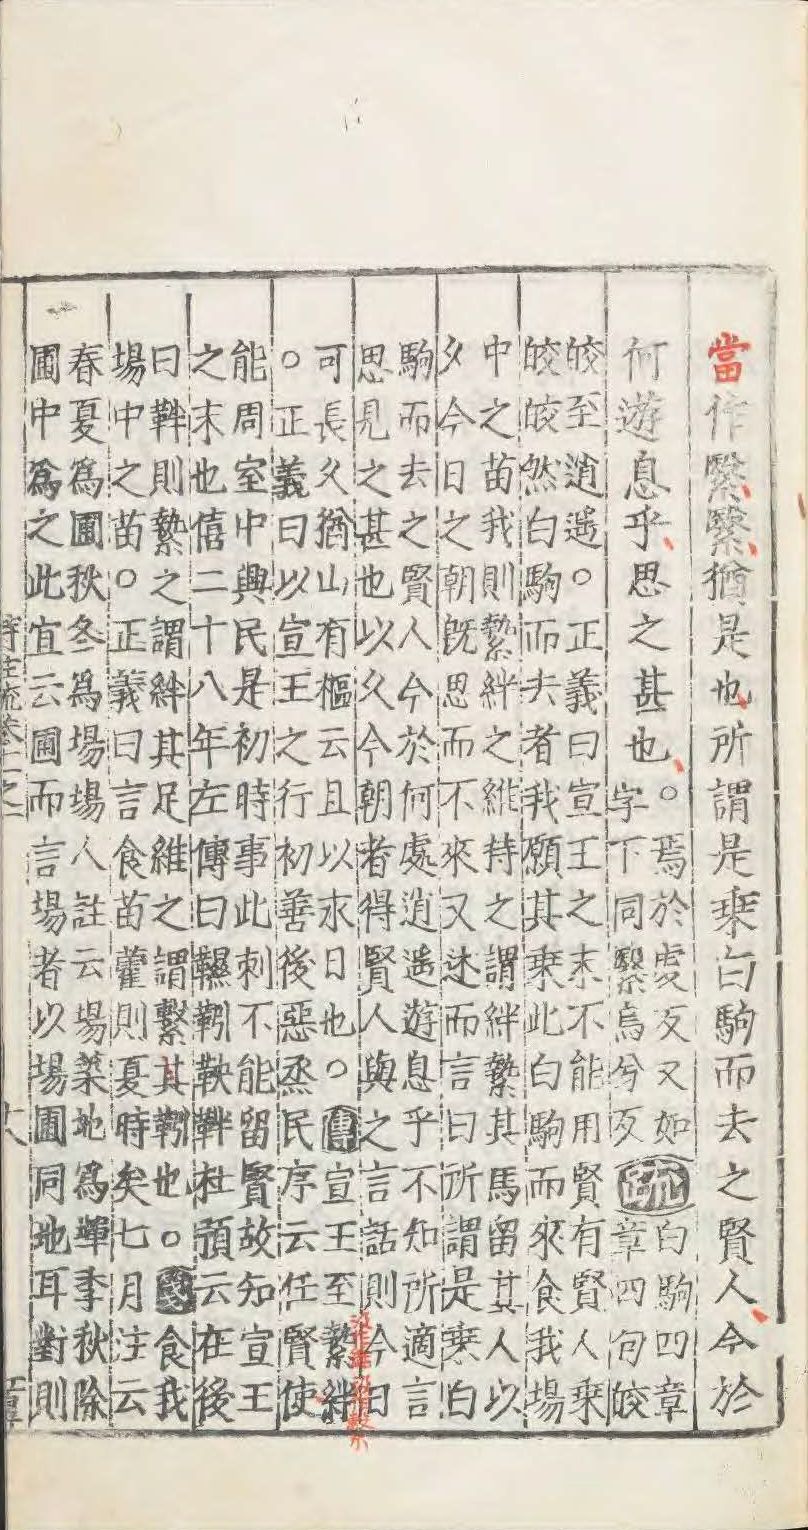 當作繄繄猶是也所謂是乘白駒而去之賢人今於
何遊息乎思之甚也○焉於虔反又如
字下同繄烏兮反
疏
白駒四章
章四句皎
皎至逍遥○正義曰宣王之末不能用賢有賢人乘
皎皎然白駒而去者我願其乘此白駒而來食我場
中之苗我則縶絆之維持之謂絆縶其馬留其人以
夕今日之朝旣思而不來又述而言曰所謂是乘白
駒而去之賢人今於何處逍遥遊息乎不知所適言
思見之甚也以久今朝者得賢人與之言話則今日
可長久猶山有樞云且以永日也○傳宣王至縶絆
○正義曰以宣王之行初善後惡烝民序云任賢使
能周室中興民是初時事此刺不能留賢故知宣王
之末也僖二十八年左傳曰韅靷鞅靽杜預云在後
曰靽則縶之謂絆其足維之謂繫其靷也○箋食我
場中之苗○正義曰言食苗藿則夏時矣七月注云
春夏爲圃秋冬爲場場人註云場築地爲墠季秋除
圃中爲之此宜云圃而言場者以場圃同地耳對則